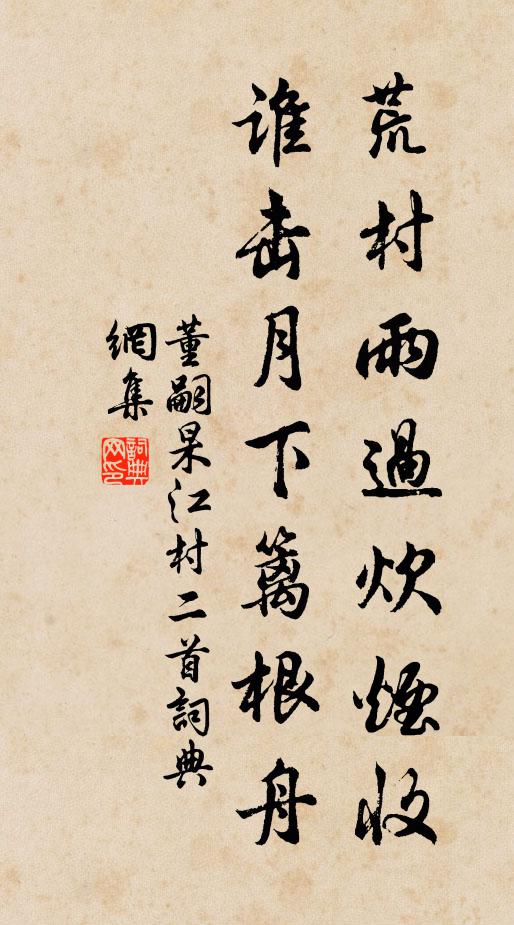 荒村雨過炊煙收
誰击月下篱根舟
董嗣杲江村二首詞典
網集
詞典
网印